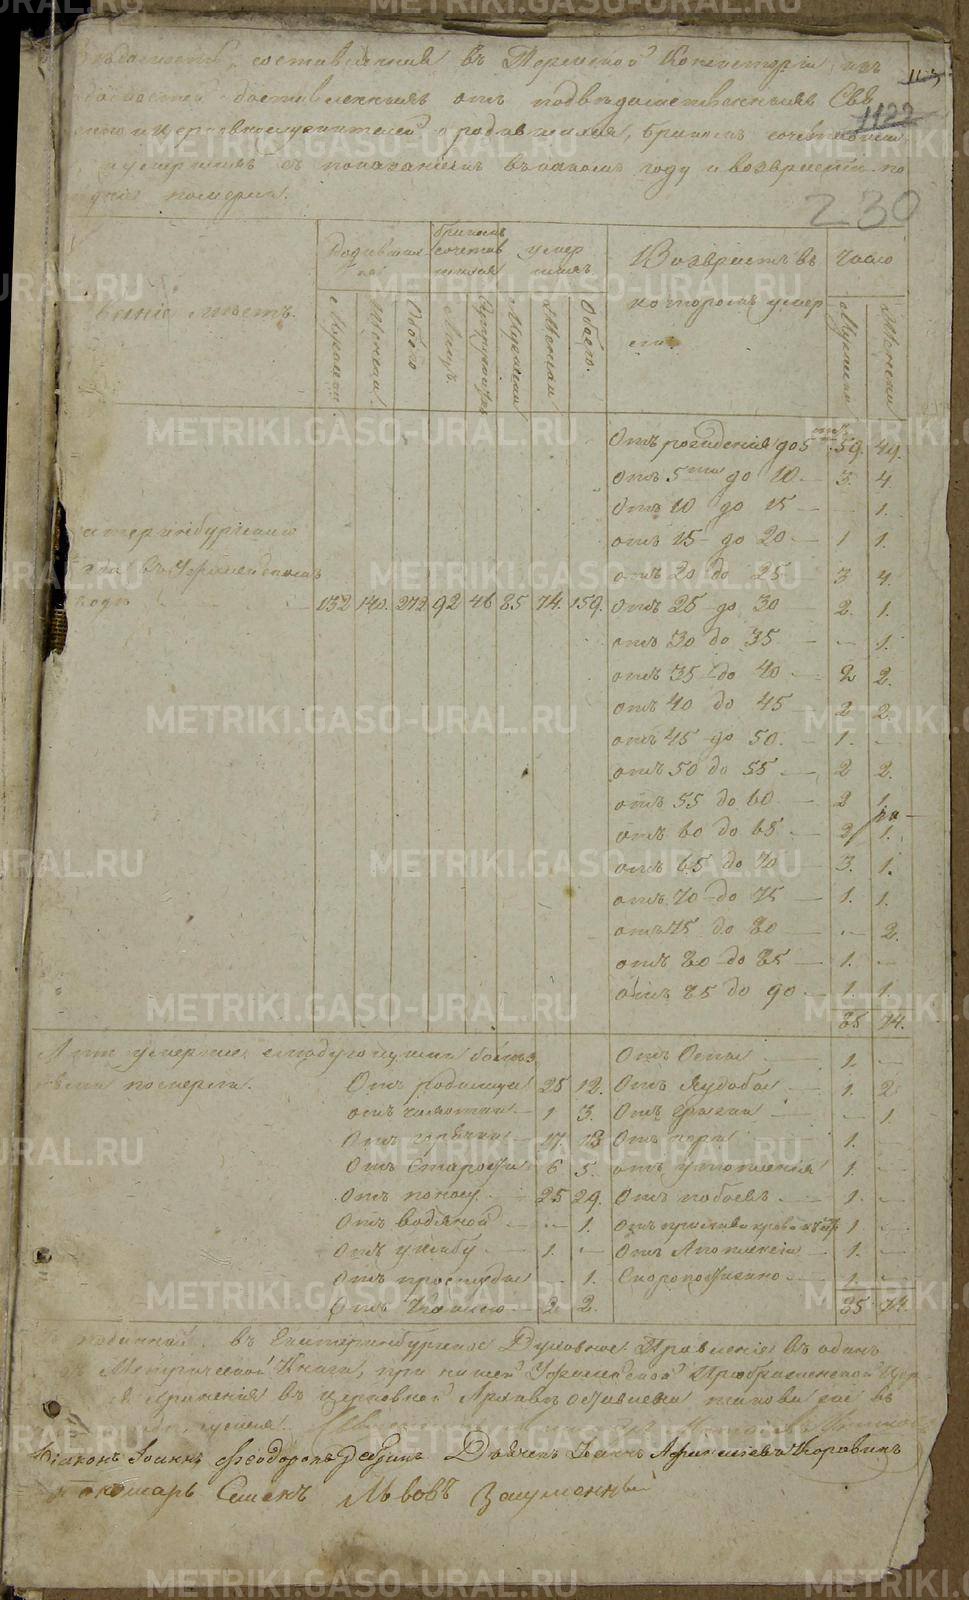 составленная въ Пермской Консисторіи изъ
доставленныхъ отъ подвѣдомственныхъ Свя
о родившихся, бракомъ сочетавши
умершихъ съ показаніемъ въ какомъ году и возврастѣ по
померли.
1122
230
званіе мѣстъ.
Родивших
ся
бракомъ
сочетав
шихся
умер
шихъ
Возврастъ въ
котором умер
ли.
Число
Мужеска
Женска
Обоего
Лицъ.
Супружествъ
Мужеска
Женска
Обоего.
Мужеска
Женска
Отъ рожденія до 5 59. 49.
отъ 5ти до 10 — 3. 4
отъ 10 до 15 — — 1.
отъ 15 до 20 — 1 1.
отъ 20 до 25 — 3 4.
катеринбургскаго
въ Уфимейскомъ
132 140. 272 92 46 85 74. 159. отъ 25 до 30 — 2. 1.
отъ 30 до 35 — — 1.
отъ 35 до 40 — 2 2.
отъ 40 до 45 2 2.
отъ 45 до 50. — 1. —
отъ 50 до 55 — 2 2.
отъ 55 до 60 — 2 1.
отъ 60 до 65 — 2 1.
отъ 65 до 70 — 3. 1.
отъ 70 до 75 — 1. 1.
отъ 75 до 80 — — 2.
отъ 80 до 85 — 1. —
отъ 85 до 90 — 1. 1.
85 74.
А тѣ умершіе слѣдующими болѣз
нями померли.
Отъ родимца 25 12.
отъ чахотки — 1 3.
Отъ горячки — 17. 13
Отъ Старости 6 5.
Отъ поносу — 25 29.
Отъ водяной — — 1.
Отъ ушибу — 1. —
Отъ простуды — 1.
Отъ Кашлю — 2 2.
Отъ Оспы — 1. —
Отъ Худобы — 1. 2
Отъ грыжи — — 1.
Отъ — 1. —
отъ утопленія 1. —
Отъ побоевъ — 1. —
Отъ прилива крови 1. —
Отъ Апоплексіи — 1. —
Скоропостижно — 1. —
85 74.
въ Екатеринбургское Духовное Правленіе въ одинъ
Метрической Книги, при нашей Преображенской Цер
храненія въ церковной Архивѣ оставлена таковая же въ
Діаконъ Іоаннъ Феодоровъ Дьячекъ Іоаннъ Коровинъ
Пономарь Семенъ Львовъ
METRIKI.GASO-URAL.RU